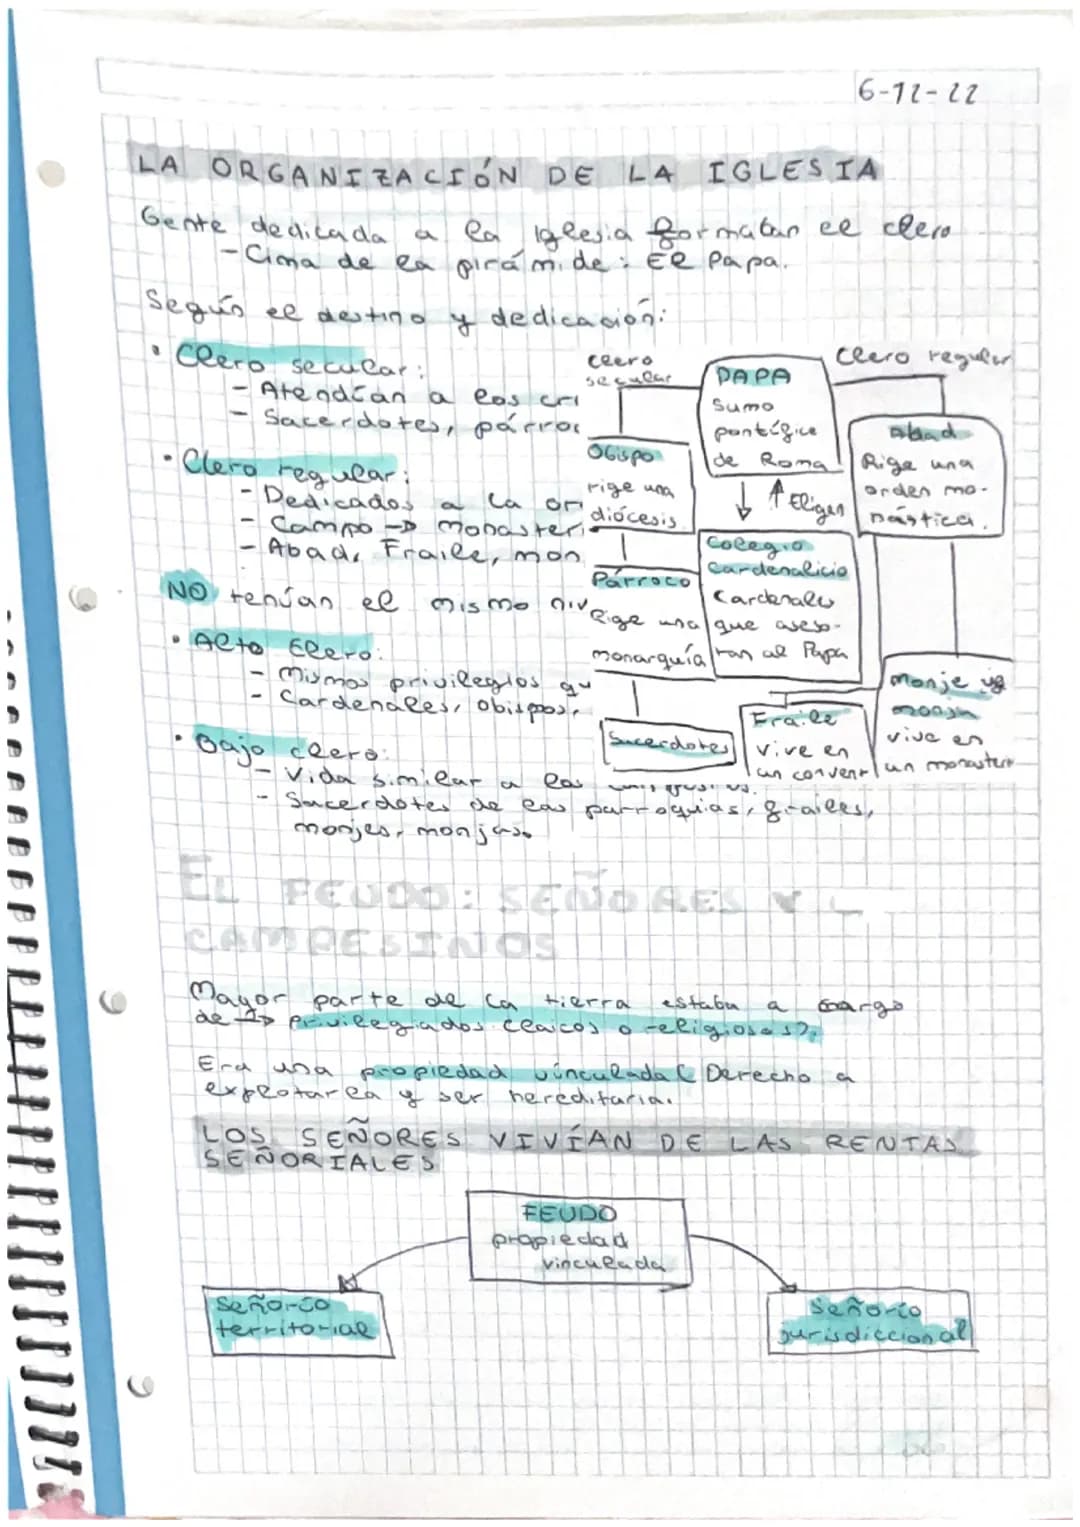 6-12-22
LA ORGANIZACIÓN DE LA IGLESIA
Gente dedicada a la iglesia formaban el clero
- Cima de la pirámide: El Papa.
Según el destino y dedicación:
• Clero secular:
- Atendían a los cri
- Sacerdotes, párroc
• Clero regular:
- Dedicados a la or
- Campo → monasteri
- Abad, Fraile, mon
NO tenían el mismo niv
• Alto Clero:
- Mismos privilegios qu
- Cardenales, obispos,
• Bajo clero:
- Vida similar a los
- Sacerdotes de las parroquias, frailes,
monjes, monjas.
clero
secular
PAPA
Sumo
pontífice
de Roma
Clero regular
Obispo
rige una
diócesis
↓ ↑ Eligen
Abad
Rige una
orden mo-
nástica.
Párroco
Rige una
monarquía
Colegio
Cardenalicio
Cardenales
que aseso-
ran al Papa
Sacerdotes
Fraile
vive en
un convent
monje
monja
vive en
un monasteri
EL FEUDO: SEÑORES Y
CAMPESINOS
Mayor parte de la tierra estaba a cargo
de → privilegiados
Era una propiedad vinculada ( Derecho a
explotarla y ser hereditaria.
LOS SEÑORES VIVÍAN DE LAS RENTAS
SEÑORIALES
FEUDO
propiedad
vinculada
Señorío
territorial
Señorío
jurisdiccional